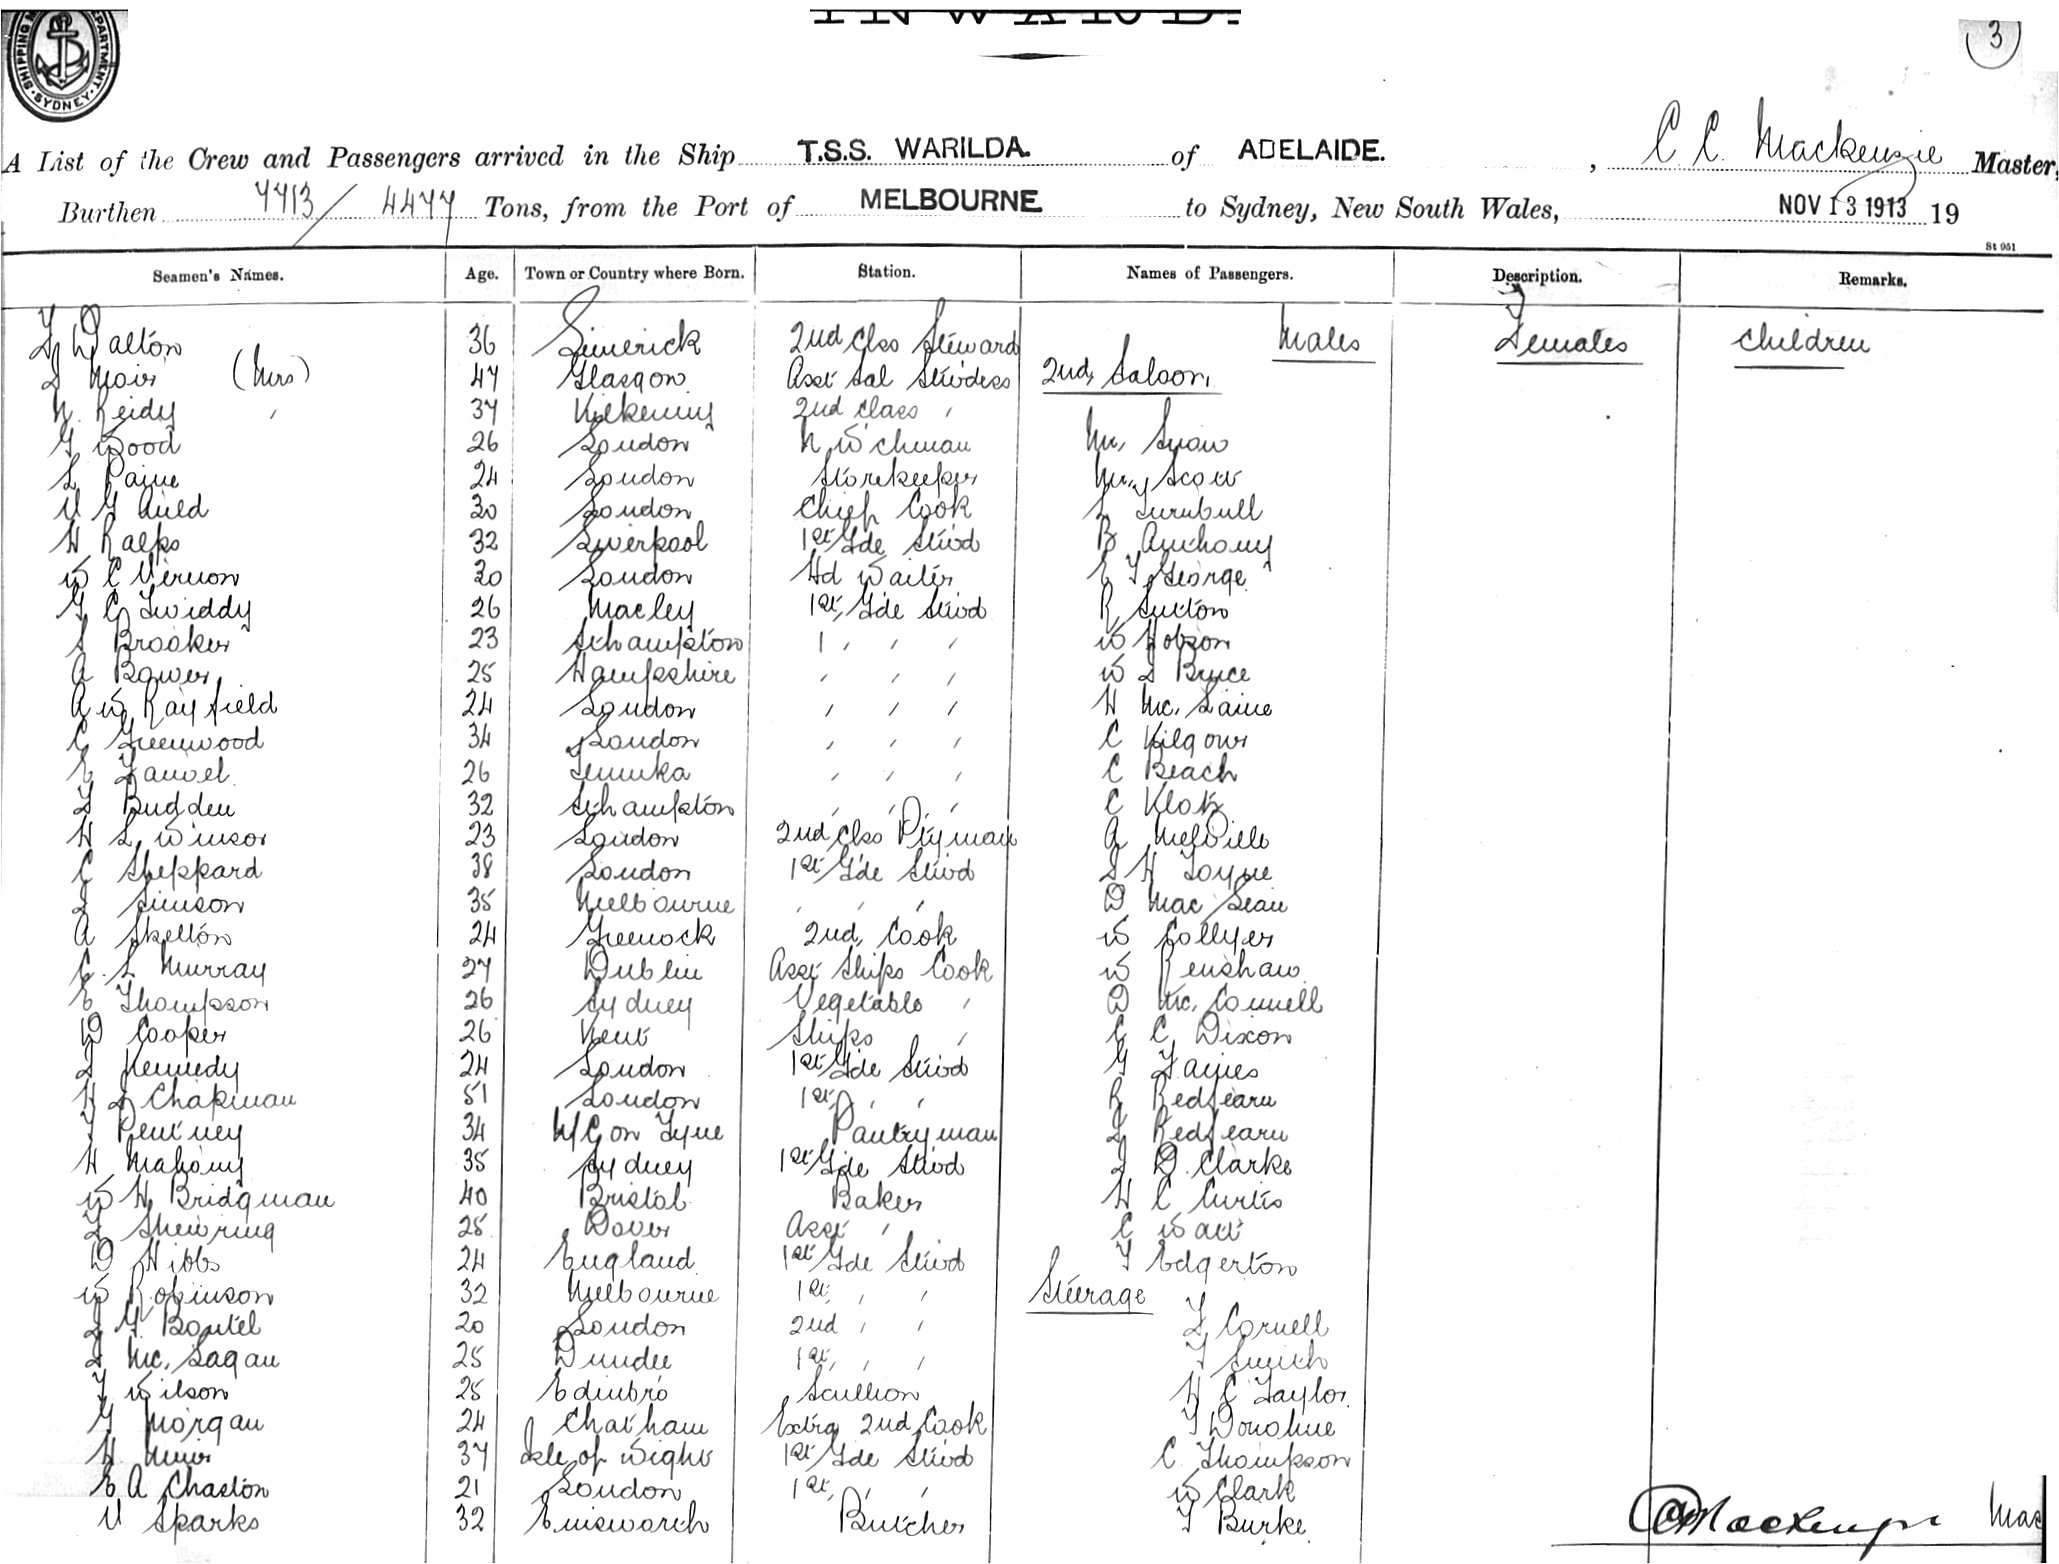 SHIPPING DEPARTMENT. SYDNEY
INWARD.
3
A List of the Crew and Passengers arrived in the Ship T.S.S. WARILDA. of ADELAIDE. , C C Mackenzie Master,
Burthen 7713 / 4477 Tons, from the Port of MELBOURNE to Sydney, New South Wales, NOV 13 1913 19
St 951
Seamen's Names. Age. Town or Country where Born. Station. Names of Passengers. Description. Remarks.
Dalton 36 Limerick 2nd Clss Steward Males Females Children
Moir (Mrs) 47 Glasgow Asst Sal Stwdess 2nd, Saloon,
N. Reidy ' 37 Kilkenny 2nd Class '
G Wood 26 London N W'chman Mr, Snow
L Paine 24 London Storekeeper Mr, Scott
V G Auld 30 London Chief Cook L Turnbull
H Ralps 32 Liverpool 1st Gde Stwd B Anthony
W C Vernon 30 London Hd Waiter E F George
G C Twiddy 26 Macley 1st, Gde Stwd R Sutton
S Brooker 23 Sthampton 1 , , , W Hobson
A Bower 25 Hampshire , , , , W S Bruce
A W Rayfield 24 London , , , H Mc. Laine
C Greenwood 34 London , , , C Kilgour
E Lauvel 26 Temuka , , , C Beach
Budden 32 Sthampton , , , C Klotz
H L Winsor 23 London 2nd Clss P'tyman A Melville
C Sheppard 38 London 1st Gde Stwd S H Toyne
Simson 35 Melbourne , , , D Mac Lean
A Skelton 24 Greenock 2nd, Cook W Collyer
C. L Murray 27 Dublin Asst Ships Cook W Renshaw
E Thompson 26 Sydney Vegetable , D Mc. Connell
D Cooper 26 Kent Ships , C C Dixon
Kennedy 24 London 1st Gde Stwd G
H S Chapman 51 London 1st, , , R Redfearn
T Pentney 34 N/C on Tyne Pantryman Redfearn
H Mahony 35 Sydney 1st Gde Stwd D. Clarke
W H Bridgman 40 Bristol Baker H C Curtis
Shewring 25 Dover Asst , C Watt
D Hibbs 24 England 1st Gde Stwd T Edgerton
W Robinson 32 Melbourne 1st, , , Steerage
G Boutel 20 London 2nd , , Cornell
Mc. Lagan 25 Dundee 1st, , , T Smith
T Wilson 25 Edinbro Scullion H C Taylor
G Morgan 24 Chatham Extra 2nd Cook T Donohue
H Muir 37 Isle of Wight 1st Gde Stwd C Thompson
E A Chaston 21 London 1st, , , W Clark
V Sparks 32 Emsworth Butcher T Burke
CC Mackenzie Mas